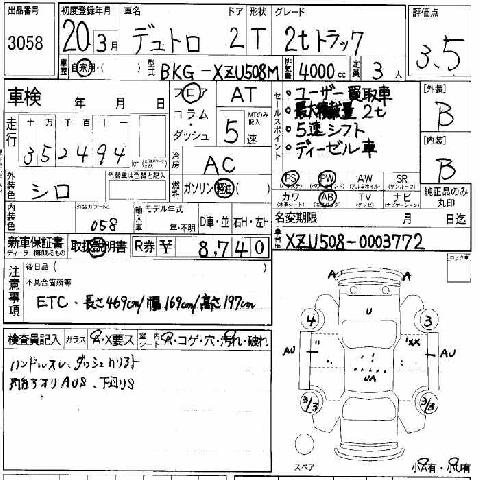 出品番号 初度登録年月 車名 ドア 形状 グレード 評価点
3058 20年3月 デュトロ 2 T 2tトラック 3.5
車歴 自家用 型式 BKG-XZU508M 排気量 4000cc 定員 3人
車検 年 月 日 フロア AT セールスポイント ・ユーザー買取車 [外装]
コラム・ダッシュ 5速 ・最大積載量2t B
走行 十万 万 千 百 十 一 ・5速シフト [内装]
352494 冷房 AC ・ディーゼル車 B
外装色 シロ 燃料 ガソリン 軽 PS PW AW SR 純正品のみ丸印
カワ AB TV ナビ
内装色 カラーNo. 058 輸入車 モデル年式 年・不明 D車・並 右H・左H 名変期限 月 日迄
新車保証書 取扱説明書 R券 ¥ 8,740 車台No. XZU508-0003772
注意事項 後日品( )
不具合箇所等
ETC・長さ469cm/幅169cm/高さ197cm
検査員記入 ガラス A・X要ス 内 ス・コゲ・穴・汚れ・破れ
ハンドルスレ、ダッシュカリスト
AUS、下回りS
A A
U
4 3
AU XX AU
UA
3/3 3/3
スペア 小A有・小U有